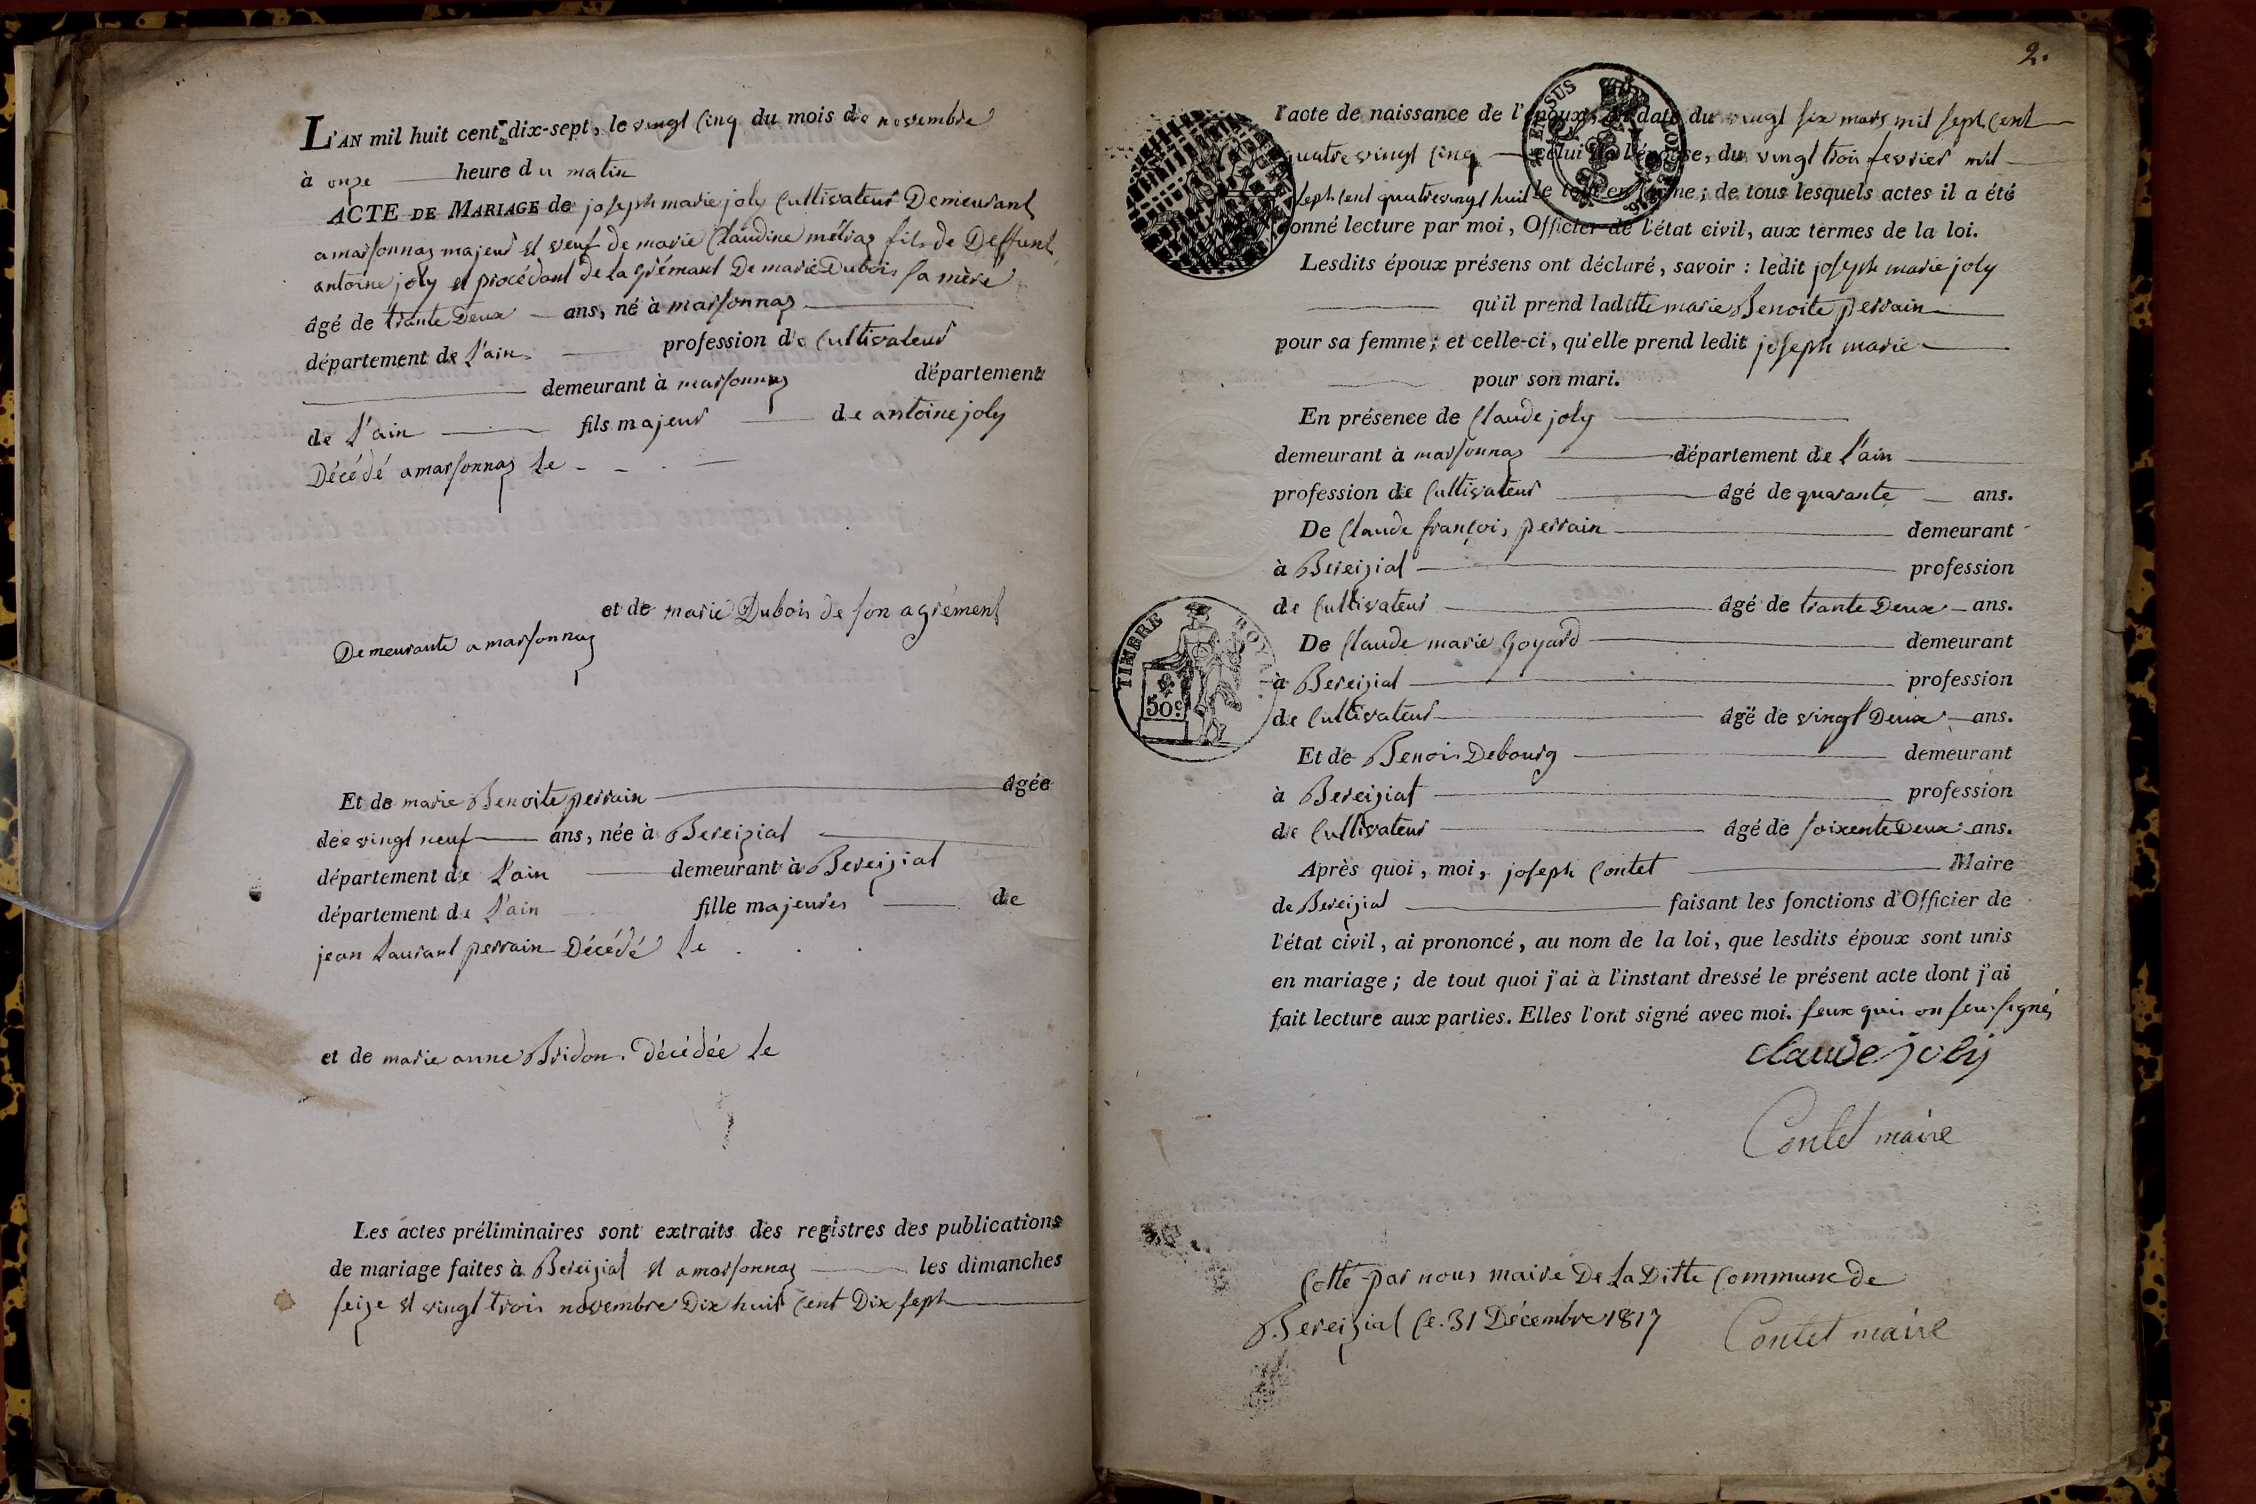 L'AN mil huit cent dix-sept, le vingt cinq du mois de novembre
à onze heure du matin
ACTE DE MARIAGE de joseph marie joly Cultivateur Demeurant
a marsonnaz majeur et veuf de marie Claudine métraz fils de Deffunt
antoine joly et procédant de la grémant De marie Dubois sa mère
âgé de trante Deux ans, né à marsonnaz
département de L'ain profession de Cultivateur
demeurant à marsonnaz département
de L'ain fils majeur de antoine joly
Décédé a marsonnaz le
et de marie Dubois de son agrément
Demeurante a marsonnaz
Et de marie Benoite perrain âgée
dee vingt neuf ans, née à Bereiziat
département de L'ain demeurant à Bereiziat
département de L'ain fille majeures de
jean Laurant perrain Décédé le
et de marie anne Bridon. Décédée le
Les actes préliminaires sont extraits des registres des publications
de mariage faites à Bereiziat et a marsonnaz les dimanches
seize et vingt trois novembre Dix huit Cent Dix sept
2.
l'acte de naissance de l'époux, en date du vingt six mars mil sept Cent
quatre vingt Cinq celui de l'épouse, du vingt trois fevrier mil
sept Cent quatre vingt huit le tout en forme; de tous lesquels actes il a été
donné lecture par moi, Officier de l'état civil, aux termes de la loi.
Lesdits époux présens ont déclaré, savoir : ledit joseph marie joly
qu'il prend laditte marie Benoite perrain
pour sa femme; et celle-ci, qu'elle prend ledit joseph marie
pour son mari.
En présence de Claude joly
demeurant à marsonnaz département de L'ain
profession de Cultivateur âgé de quarante ans.
De Claude françois perrain demeurant
à Bereiziat profession
de Cultivateur âgé de trante Deux ans.
De Claude marie Goyard demeurant
TIMBRE ROYAL
à Bereiziat profession
50 c
de Cultivateur âgé de vingt Deux ans.
Et de Benois Debourg demeurant
à Bereiziat profession
de Cultivateur âgé de soixente Deux ans.
Après quoi, moi, joseph Contet Maire
de Bereiziat faisant les fonctions d'Officier de
l'état civil, ai prononcé, au nom de la loi, que lesdits époux sont unis
en mariage; de tout quoi j'ai à l'instant dressé le présent acte dont j'ai
fait lecture aux parties. Elles l'ont signé avec moi. seux quis on seu signé
claude joly
Contet maire
Cotté par nous maire De La Ditte Commune de
Bereiziat Ce. 31 Décembre 1817 Contet maire